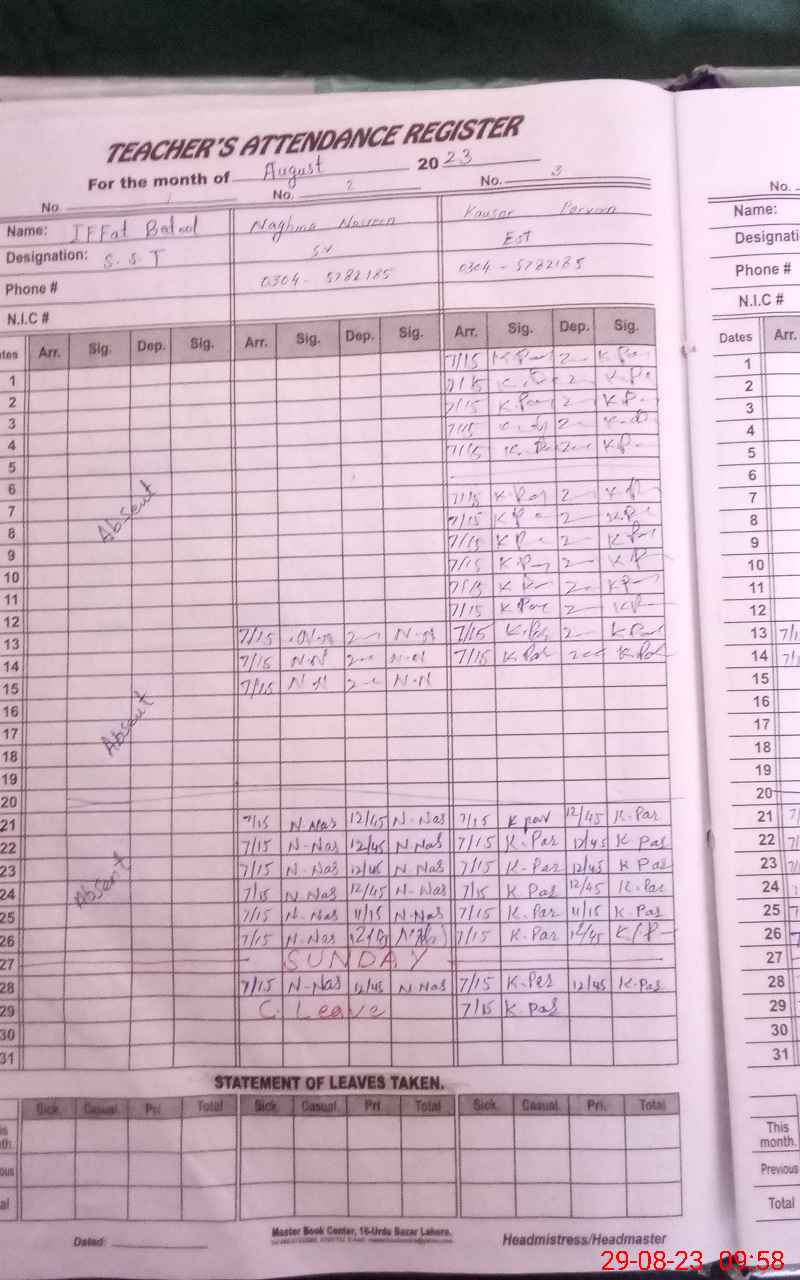 TEACHER'S ATTENDANCE REGISTER
For the month of August 2023
No. 1 No. 2 No. 3 No.
Name: IFFat Batool Naghma Nasreen Kausar Parveen Name:
Designation: S.S.T S.V EST
Phone # 0304-5782185 0304-5782185 Phone #
N.I.C # N.I.C #
Arr. Sig. Dep. Sig. Arr. Sig. Dep. Sig. Arr. Sig. Dep. Sig. Dates Arr.
7/15 K Par 2 K Par
1 7/15 2 1
2 7/15 K.Par 2 K P 2
3 7/15 3
4 7/15 2 K P 4
5 5
6 6
Absent
7 7/15 K.Par 2 7
8 7/15 K P 2 8
9 7/15 K P 2 K Par 9
10 7/15 K P 2 K P 10
11 7/15 K Par 2 K Par 11
12 7/15 K Par 2 K P 12
13 7/15 2 7/15 K.Par 2 K Par 13
14 7/15 N-N 2 N-N 7/15 K Par 2 K.Par 14
15 7/15 N-N 2 N-N 15
16 16
Absent
17 17
18 18
19 19
20 20
21 7/15 N-Nas 12/45 N-Nas 7/15 K par 12/45 K.Par 21
22 7/15 N-Nas 12/45 N.Nas 7/15 K.Par 12/45 K Par 22
23 7/15 N-Nas 12/45 N.Nas 7/15 K-Par 12/45 K Par 23
Absent
24 7/15 N.Nas 12/45 N-Nas 7/15 K Par 12/45 K.Par 24
25 7/15 N-Nas 11/15 N.Nas 7/15 K.Par 11/15 K.Par 25
26 7/15 N-Nas 7/15 K.Par 12/45 26
27 SUNDAY 27
28 7/15 N-Nas 12/45 N Nas 7/15 K.Par 12/45 K.Par 28
29 C. Leave 7/15 K Par 29
30 30
31 31
STATEMENT OF LEAVES TAKEN.
Sick. Casual. Pri. Total Sick. Casual. Pri. Total Sick. Casual. Pri. Total
This month.
Previous
Total
Dated: Master Book Center, 16-Urdu Bazar Lahore. Headmistress/Headmaster
29-08-23 09:58